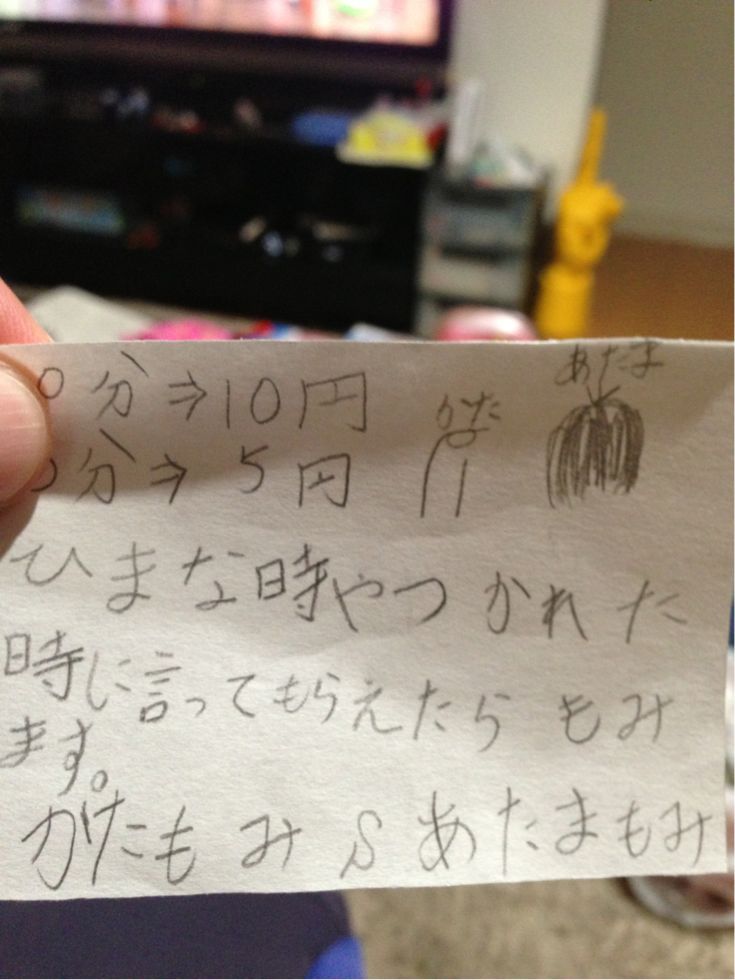 0分⇒10円
分⇒5円
かた
あたま
ひまな時やつかれた
時に言ってもらえたらもみ
ます。
かたもみ & あたまもみ